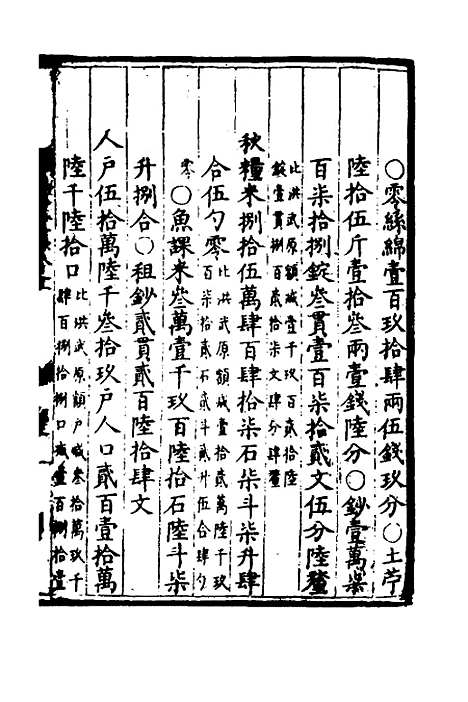 ○零絲綿壹百玖拾肆兩伍錢玖分○土苧
陸拾伍斤壹拾叁兩壹錢陸分○鈔壹萬柒
百柒拾捌錠叁貫壹百柒拾貳文伍分陸釐
比洪武原額減壹千玖百貳拾陸
錠壹貫捌百柒文肆分肆釐
秋糧米捌拾伍萬肆百肆拾柒石柒斗柒升肆
合伍勺零
比洪武原額減壹萬陸千玖
百柒拾貳石貳斗貳升伍合肆勺
零
○魚課米叁萬壹千玖百陸拾石陸斗柒
升捌合○租鈔貳貫貳百陸拾肆文
人户伍拾萬陸千叁拾玖户人口貳百壹拾萬
陸千陸拾口
比洪武原額户減叁拾萬玖千
肆百捌拾捌口減壹百捌拾壹